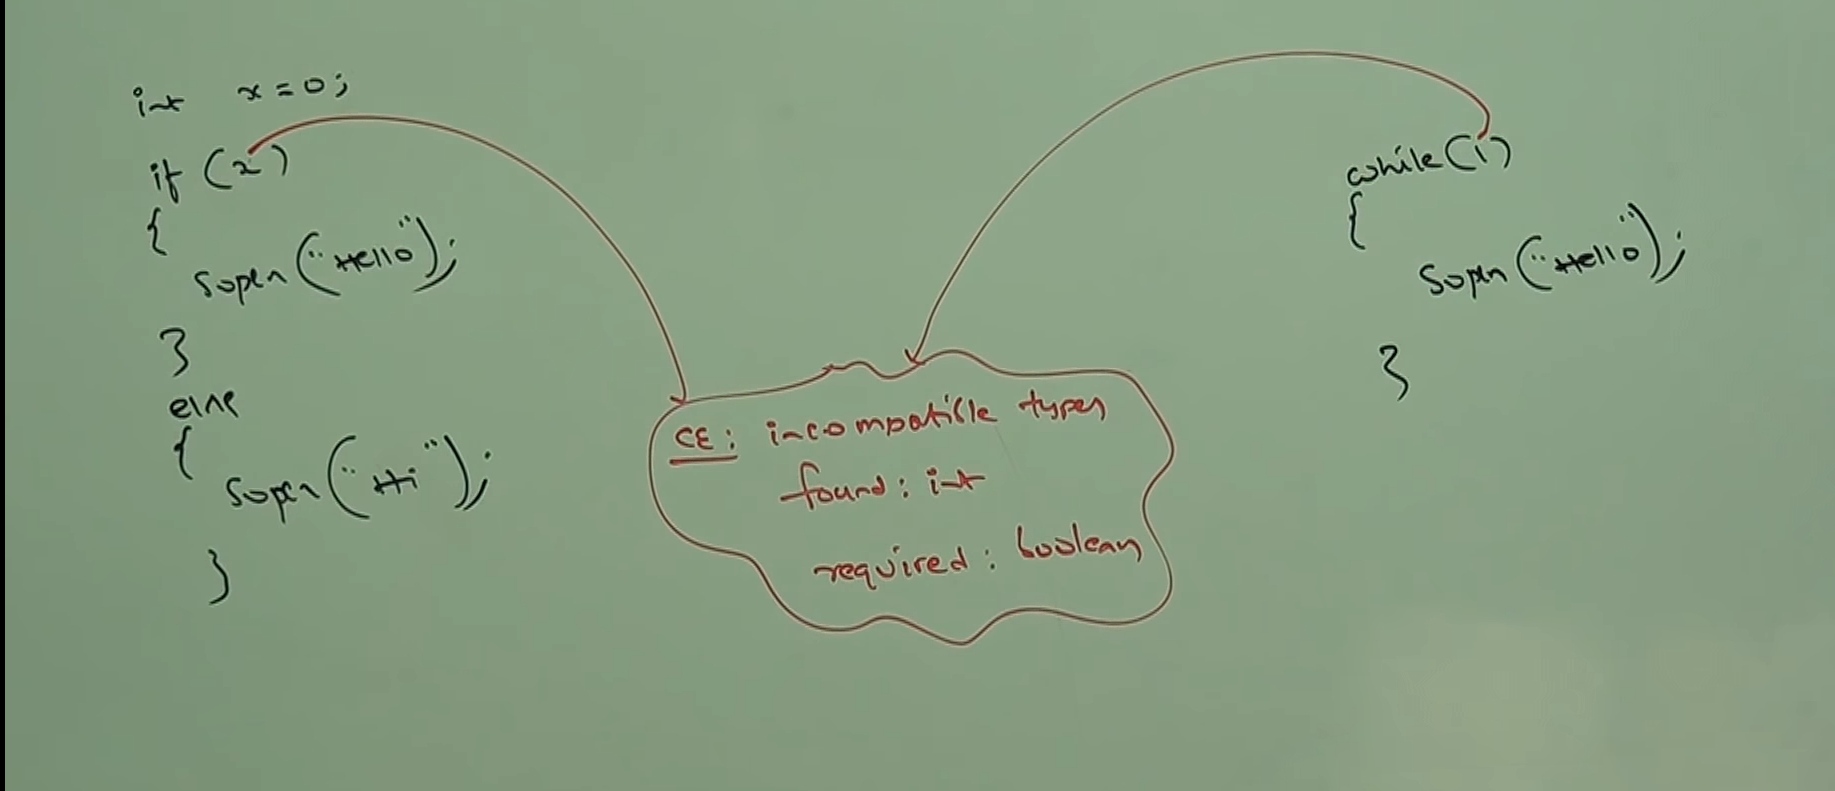 int x = 0;
if (x)
{
Sopln ("Hello");
}
else
{
Sopln ("Hi");
}
CE: incompatible types
found: int
required: boolean
while (1)
{
Sopln ("Hello");
}